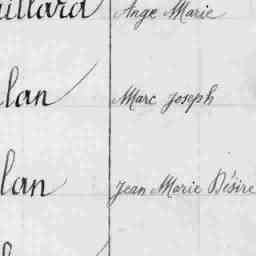 uillard Ange Marie
lan Marc Joseph
lan Jean Marie Désiré